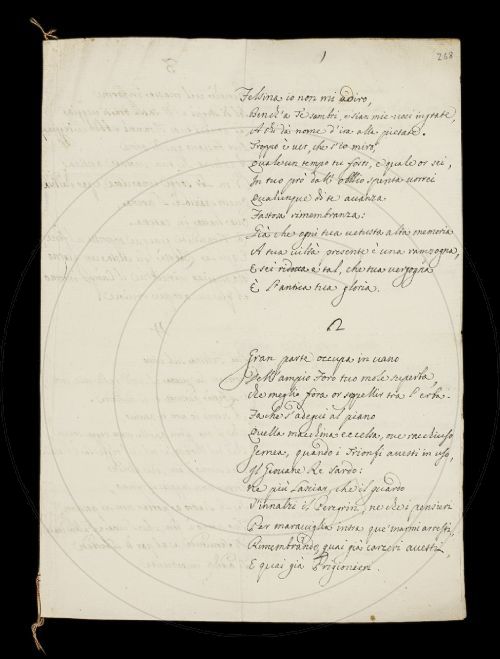 1
268
Felsina io non mi adiro,
Bench'a Te sembri, e sian mie voci
A chi dà nome d'ira alla pietate.
Troppo è ver, che s'io miro,
Quale un tempo tu fosti, e quale or sei,
In tuo prò dall' obblio spenta vorrei
Qualunque di te avanza
Fastosa rimembranza:
Già che ogni tua vetusta alta memoria
A tua viltà presente è una rampogna,
E sei ridotta a tal, che tua vergogna
È l'antica tua gloria.
2
Gran parte occupa in vano
Dell'ampio Foro tuo mole superba,
Che meglio fora or seppellir tra l'erba.
Fa che s'adegui al piano
Quella macchina eccelsa, ove racchiuso
Tenea, quando i Trionfi avesti in uso,
Il Giovane Re Sardo:
Ne più lasciar, che il guardo
S'innalzi il Peregrin, ne che i pensieri
Per maraviglia intra que' marmi arresti,
Rimembrando, quai già carceri avesti,
E quai già Prigionieri.